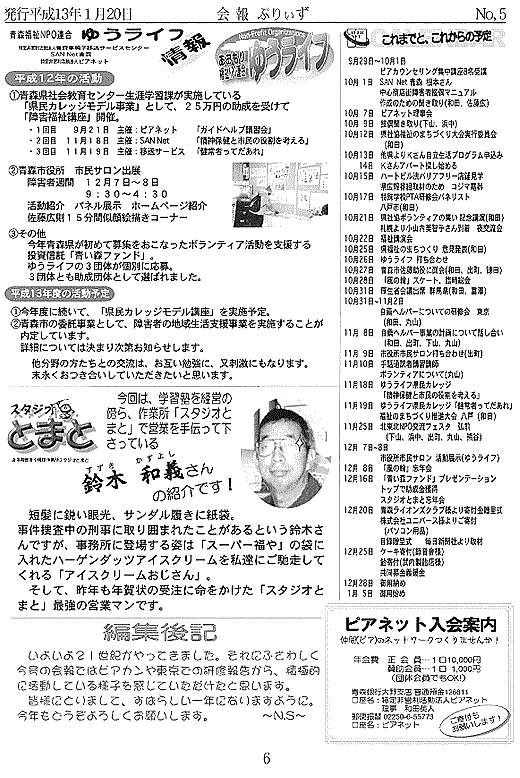 発行平成13年1月20日
会報 ぷりぃず
No,5
青森福祉NPO連合 ゆうライフ
SAN Net青森
特定非営利活動法人ピアネット
情報
Non-Profit Organizations
ゆうライフ
平成12年の活動
①青森県総合社会教育センター生涯学習課が実施している
「県民カレッジモデル事業」として、25万円の助成を受けて
「障害福祉講座」開催。
・1回目 9月21日 主催:ピアネット 「ガイドヘルプ講習会」
・2回目 11月18日 主催:SAN Net 「精神保健と市民の役割を考える」
・3回目 11月19日 主催:移送サービス 「健常者ってだあれ」
②青森市役所 市民サロン出展
障害者週間 12月7~8日
9:30~4:30
活動紹介 パネル展示 ホームページ紹介
佐藤広則15分間似顔絵描きコーナー
③その他
今年青森県が初めて募集をおこなったボランティア活動を支援する
投資信託「青い森ファンド」。
ゆうライフの3団体が個別に応募。
3団体とも助成団体として選ばれました。
平成13年度の活動予定
①今年度に続いて、「県民カレッジモデル講座」を実施予定。
②青森市の委託事業として、障害者の地域生活支援事業を実施することが
内定しています。
詳細については決まり次第お知らせします。
他分野の方たちとの交流は、お互い勉強に、又刺激にもなります。
末永くおつき合いしていただきたいと思います。
スタジオ
とまと
今回は、学習塾を経営の
傍ら、作業所「スタジオと
まと」で営業を手伝って下
さっている
鈴木 和義さん
すずき かずよし
の紹介です!
短髪に鋭い眼光、サンダル履きに紙袋。
事件捜査中の刑事に取り囲まれたことがあるという鈴木さ
んですが、事務所に登場する姿は「スーパー福や」の袋に
入れたハーゲンダッツアイスクリームを私達にご馳走して
くれる「アイスクリームおじさん」。
そして、昨年も年賀状の受注に命をかけた「スタジオと
まと」最強の営業マンです。
編集後記
いよいよ21世紀がやってきました。それにふさわしく
今号の会報ではピアカンや東京での研修報告から、積極的
に活動している様子を感じていただけたと思います。
皆様にといまして、すばらしい一年になりますように。
今年もどうぞよろしくお願いします。 ~N.S~
これまでと、これからの予定
9月29日~10月1日
ピアカウンセリング集中講座8名受講
10月 1日 SAN Net 青森 根本さん
中心商店街障害者設備マニュアル
作成のための聞き取り(和田、佐藤広)
10月 7日 ピアネット理事会
10月 9日
10月12日 県社協福祉のまちづくり大会実行委員会
(和田)
10月13日 他県よりKさん自立生活プログラム申込み
14日 Kさんアパート探し始める
10月15日
10月17日
八戸市(和田)
10月21日
10月22日 福祉講演会
10月25日 県福祉のまちづくり 意見発表(和田)
10月26日 ゆうライフ 打ち合わせ
10月27日
10月28日
10月31日
10月31日~11月2日
自薦ヘルパーについての研修会 東京
(和田、丸山)
11月 8日 自薦ヘルパー事業の計画について話し合い
(和田、出町、下山、丸山)
11月 9日 市役所市民サロン打ち合わせ(出町)
11月10日 手話通訳者講習講師
ボランティアについて(丸山)
11月18日 ゆうライフ県民カレッジ
「精神保健と市民の役割を考える」
11月19日 ゆうライフ県民カレッジ「健常者ってだあれ」
福祉のまちづくり推進大会 八戸(和田)
11月25日 北東北NPO交流フェスタ 弘前
12月 7日~8日
市役所市民サロン 活動展示(ゆうライフ)
12月 8日 「風の輪」忘年会
12月16日 「青い森ファンド」プレゼンテーション
トップで助成金獲得
スタジオとまと忘年会
12月20日 青森ライオンズクラブ様より寄付金贈呈式
株式会社ユニバース様よりご寄付
(パソコン用品)
目録贈呈式 毎日新聞社より取材
12月25日
共同募金義援金
12月28日 御用納め
1月 5日 御用始め
ピアネット入会案内
仲間(ピア)のネットワークつくりませんか!
年会費 正会員…1口10,000円
賛助会員…1口 1,000円
(団体会員でもOK!)
青森銀行大野支店 普通預金126811
口座名:特定非営利活動法人ピアネット
理事 和田英人
郵便振替 02250-6-55773
口座名:ピアネット
ご寄付も
お願いします!
6